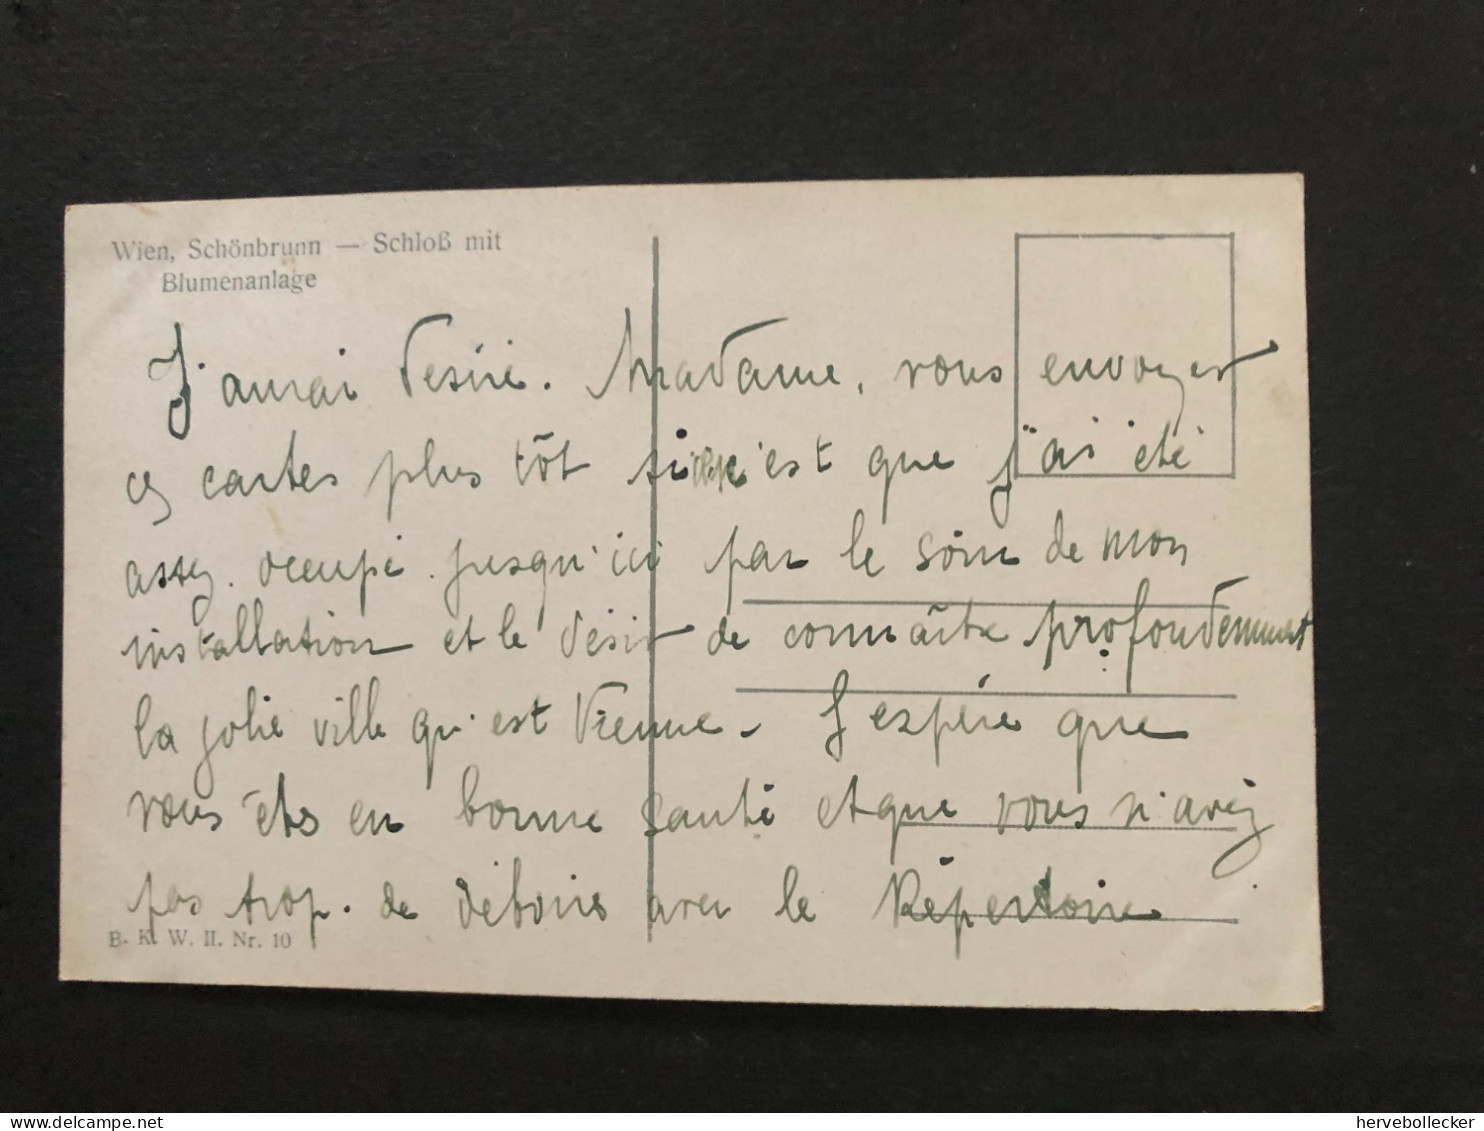 Wien, Schönbrunn — Schloß mit
Blumenanlage
J'aurai désiré. Madame, vous envoyer
ces cartes plus tôt si c'est que j'ai été
assez occupé jusqu'ici par le soin de mon
installation et le désir de connaître profondement
la jolie ville qu'est Vienne. J'espère que
vous êtes en bonne santé et que vous n'avez
pas trop de déboires avec le Répertoire
B. K. W. II. Nr. 10
hervebollecker